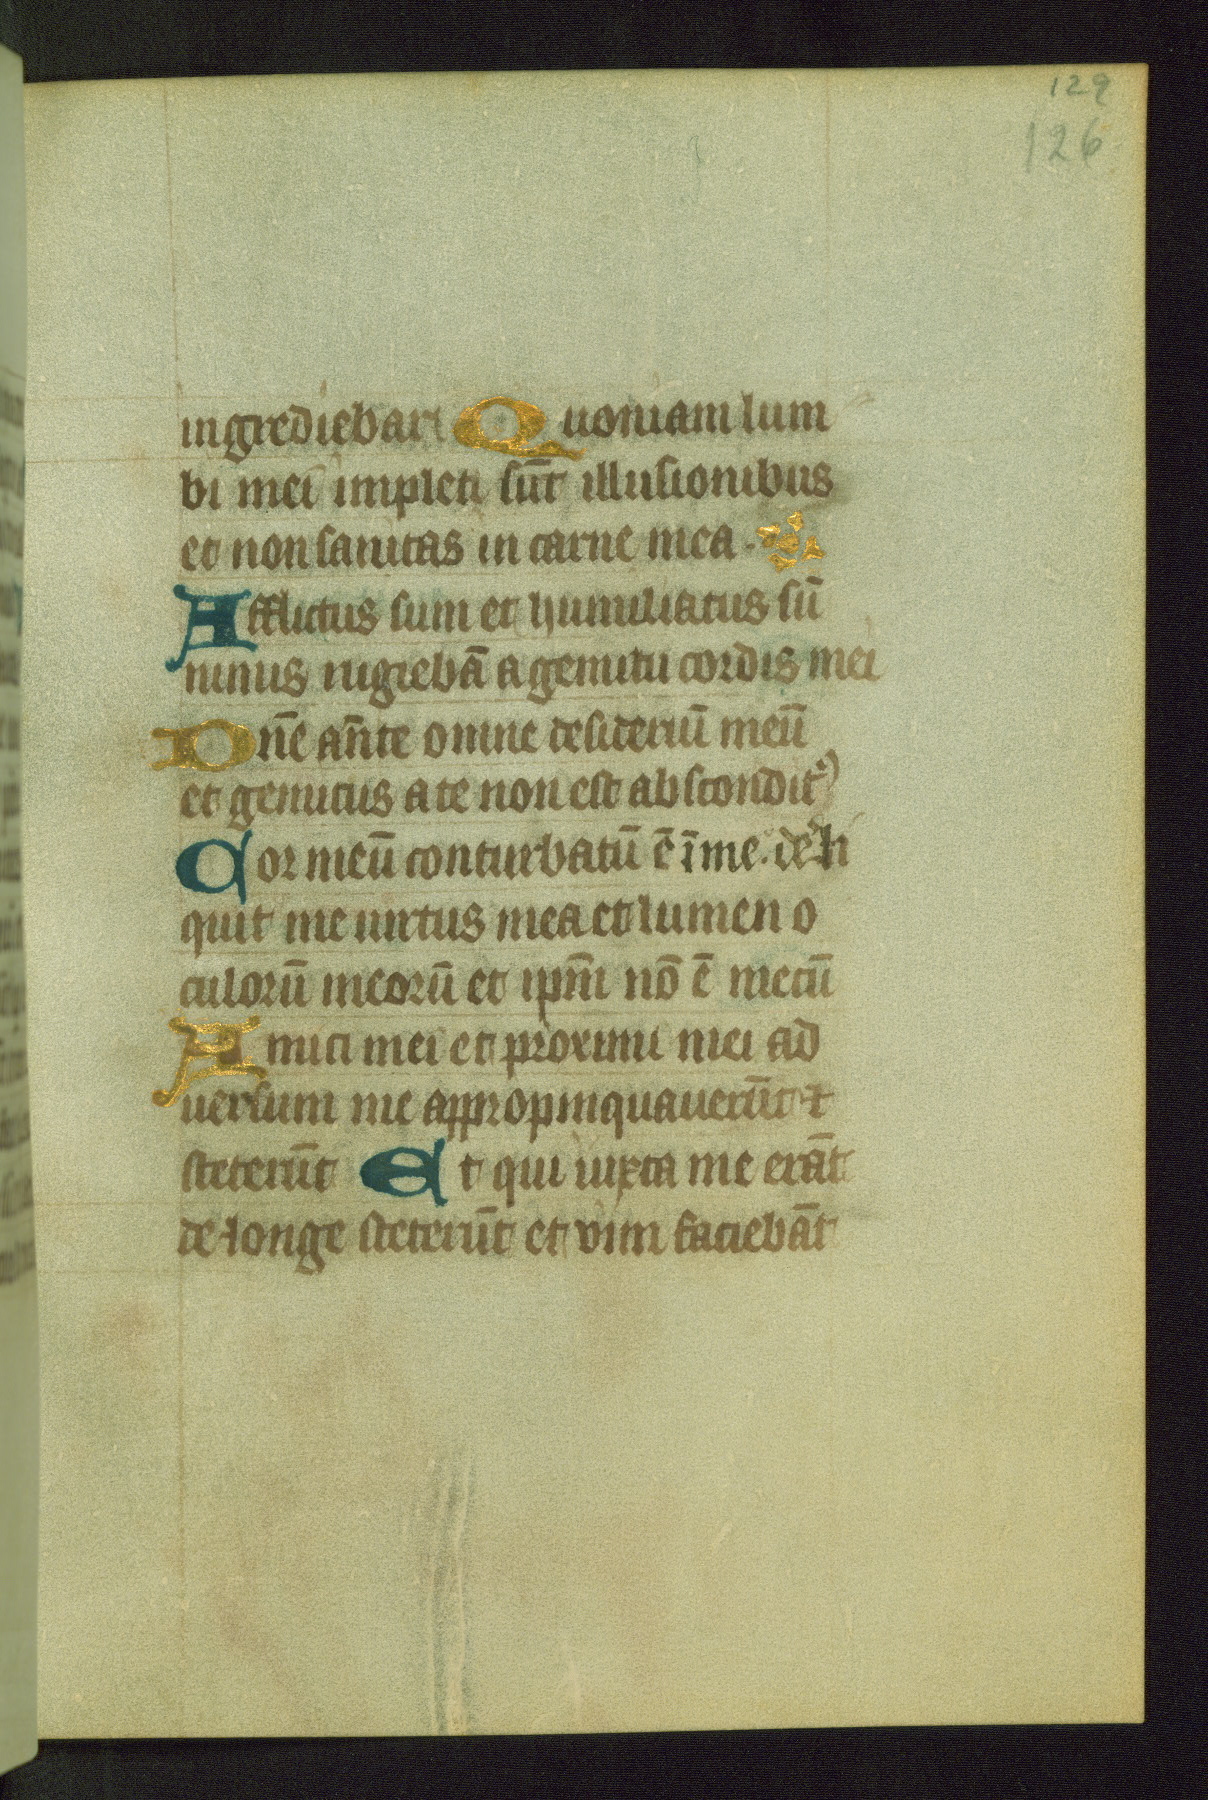 129
126
ingrediebar Quoniam lum
bi mei impleti sūt illusionibus
et non sanitas in carne mea .
Afflictus sum et humiliatus sū
nimus rugiebā a gemitu cordis mei
Dn̄e an̄te omne desideriū meū
et gemitus a te non est abscondit᷒
Cor meū conturbatū ē ī me . de
quit me uirtus mea et lumen o
culorū meorū et ip̄m nō ē mecū
Amici mei et proximi mei ad
uersum me appropinquauerūt ⁊
steterūt Et qui iuxta me erāt
de longe steterūt et vim faciebāt